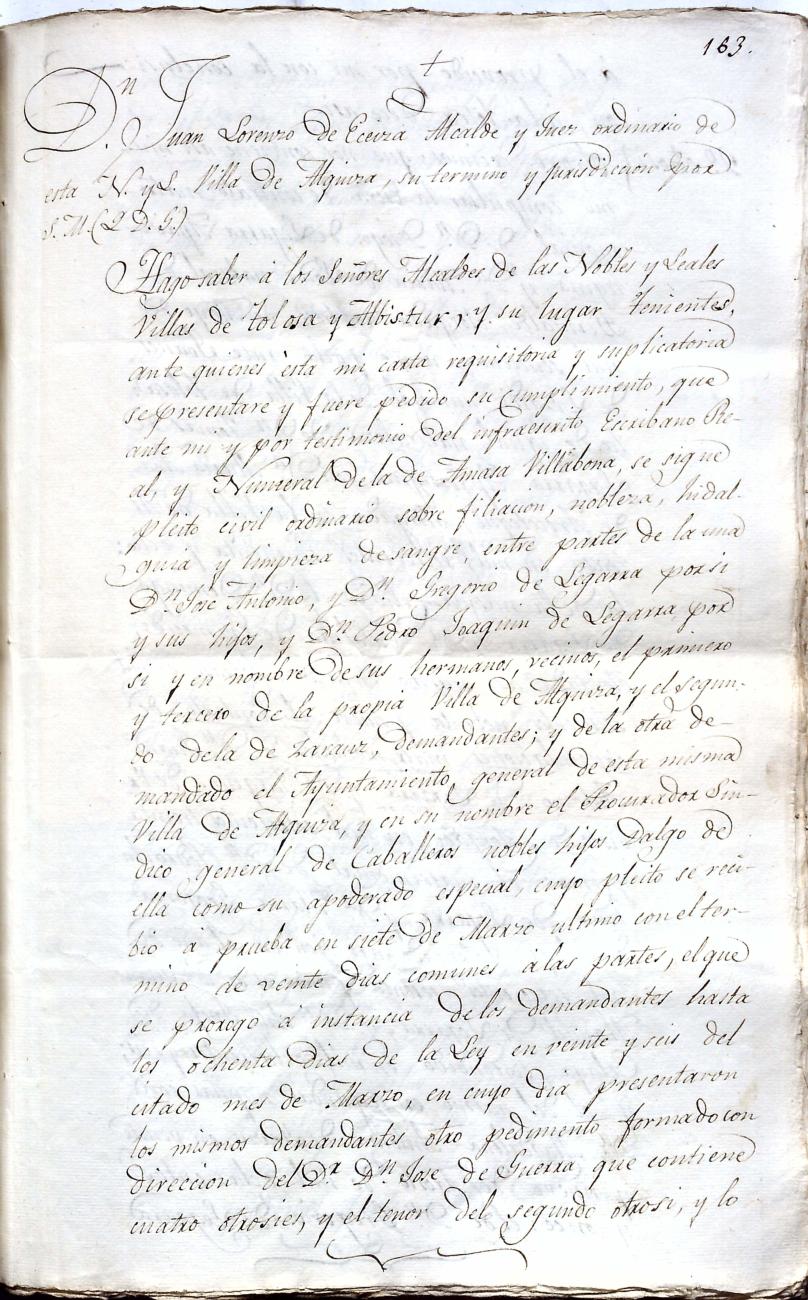 163.
+
Dn. Juan Lorenzo de Eceiza Alcalde y Juez ordinario de
esta N. y L. Villa de Alquiza, su termino y jurisdiccion por
S. M. (Q. D. G.)
Hago saber á los Señores Alcaldes de las Nobles y Leales
Villas de Tolosa y Albistur, y su lugar tenientes,
ante quienes esta mi carta requisitoria y suplicatoria
se presentare y fuere pedido su cumplimiento, que
ante mi y por testimonio del infraescrito Escribano Re-
al, y Numeral de la de Amasa Villabona, se sigue
pleito civil ordinario sobre filiacion, nobleza, hidal-
guia y limpieza de sangre, entre partes de la una
Dn. Jose Antonio, y Dn. Gregorio de Legarra por si
y sus hijos, y Dn. Pedro Joaquin de Legarra por
si y en nombre de sus hermanos, vecinos, el primero
y tercero de la propia Villa de Alquiza, y el segun-
do de la de Zarauz, demandantes; y de la otra de-
mandado el Ayuntamiento general de esta misma
Villa de Alquiza, y en su nombre el Procurador Sin-
dico general de Caballeros nobles hijos Dalgo de
ella como su apoderado especial, cuyo pleito se reci-
bió á prueba en siete de Marzo ultimo con el ter-
mino de veinte dias comunes á las partes, el que
se prorogo á instancia de los demandantes hasta
los ochenta dias de la Ley en veinte y seis del
citado mes de Marzo, en cuyo dia presentaron
los mismos demandantes otro pedimento formado con
direccion del Dr. Dn. Jose de Guerra, que contiene
cuatro otrosies, y el tenor del segundo otrosi, y lo